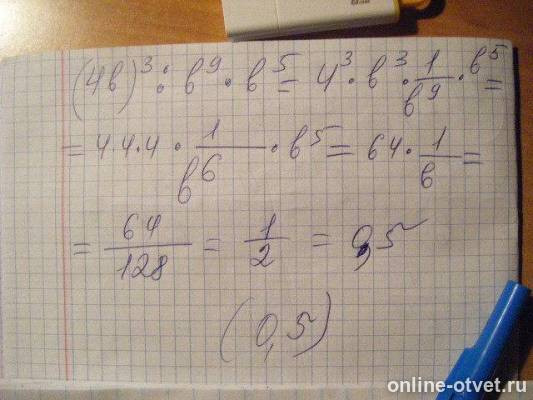 (4в)³ : в⁹ · в⁵ = 4³ · в³ · 1/в⁹ · в⁵ =
= 4·4·4 · 1/в⁶ · в⁵ = 64 · 1/в =
= 64/128 = 1/2 = 0,5
(0,5)
online-otvet.ru